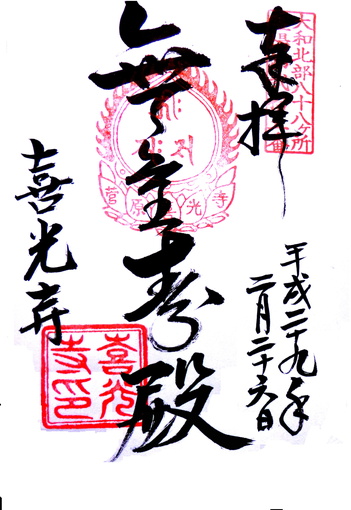 奉拝
大和北部八十八ヶ所
平成二十九年
二月二十六日
無量寿殿
菅原
光寺
喜光寺
喜光寺印